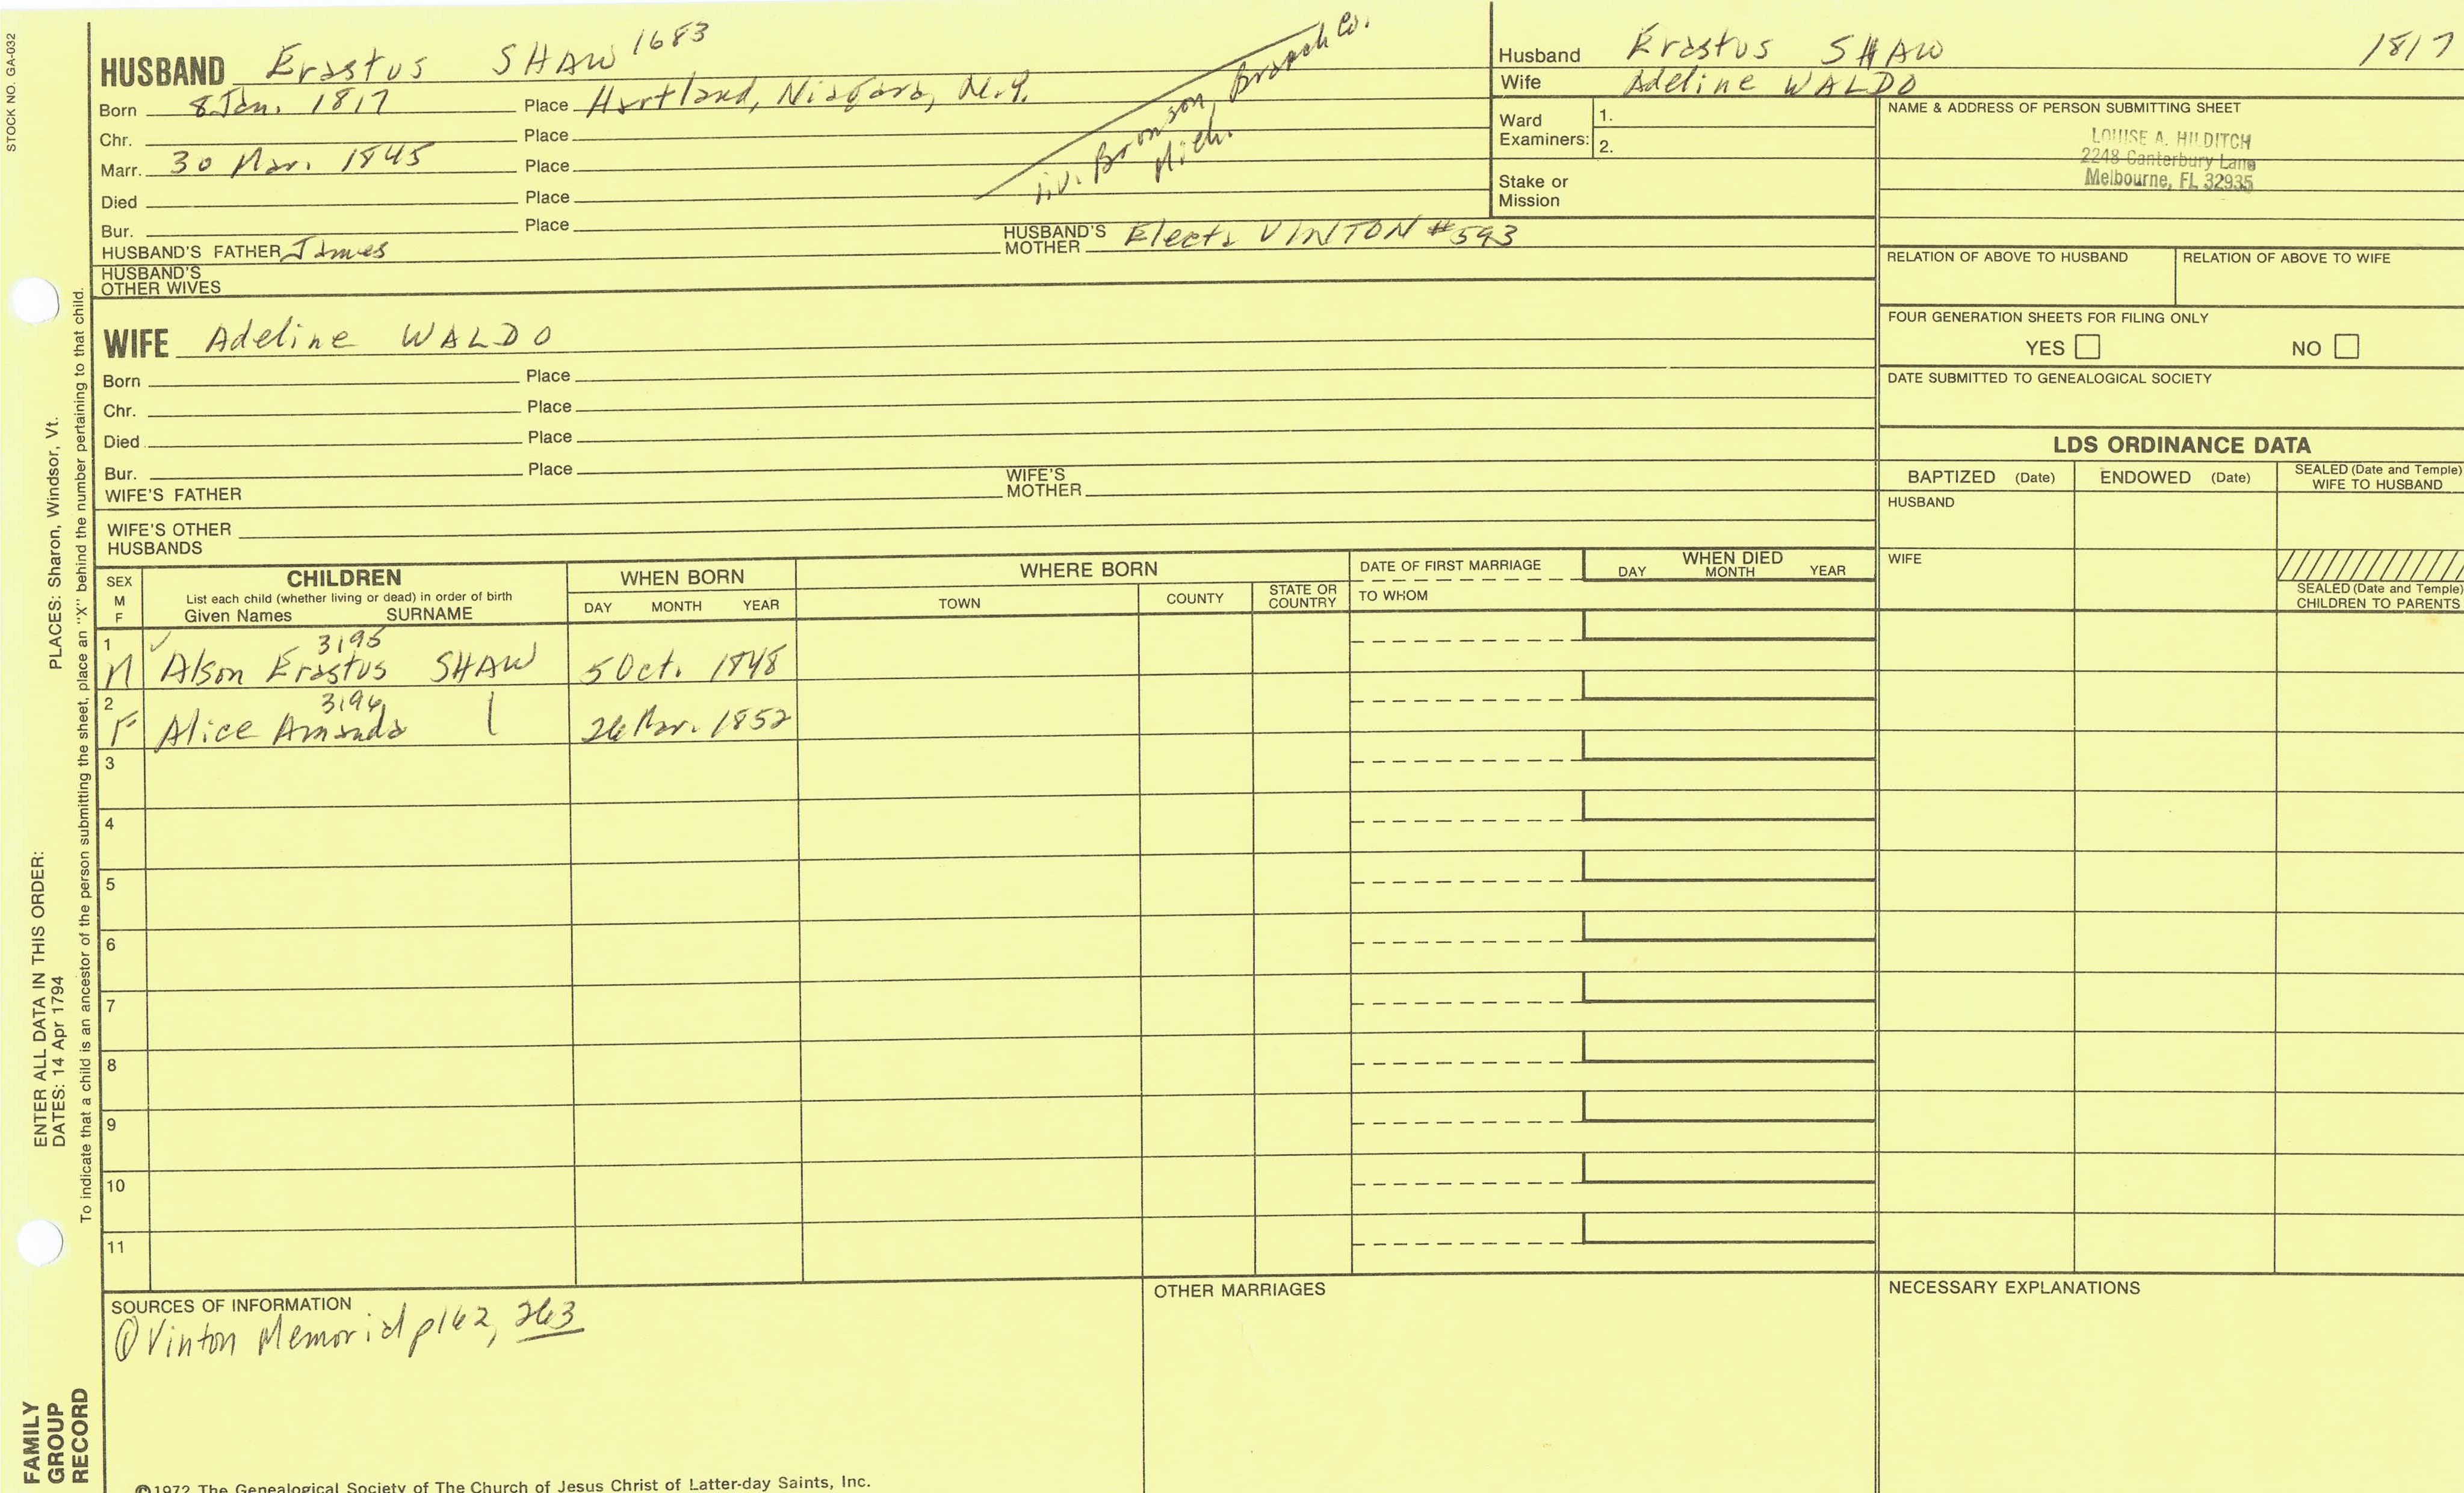 STOCK NO. GA-032
HUSBAND Erastus SHAW 1683
Born 8 Jan. 1817 Place Hartland, Niagara, N.Y.
Chr. Place
Marr. 30 Mar. 1845 Place
Died Place
Bur. Place
liv. Bronson, Branch Co.
Mich.
HUSBAND'S FATHER James
HUSBAND'S MOTHER Electa VINTON #593
HUSBAND'S OTHER WIVES
WIFE Adeline WALDO
Born Place
Chr. Place
Died Place
Bur. Place
WIFE'S FATHER
WIFE'S MOTHER
WIFE'S OTHER HUSBANDS
Husband Erastus SHAW 1817
Wife Adeline WALDO
Ward Examiners: 1.
2.
Stake or Mission
NAME & ADDRESS OF PERSON SUBMITTING SHEET
LOUISE A. HILDITCH
2248 Canterbury Lane
Melbourne, FL 32935
RELATION OF ABOVE TO HUSBAND RELATION OF ABOVE TO WIFE
FOUR GENERATION SHEETS FOR FILING ONLY
YES NO
DATE SUBMITTED TO GENEALOGICAL SOCIETY
LDS ORDINANCE DATA
BAPTIZED (Date) ENDOWED (Date) SEALED (Date and Temple) WIFE TO HUSBAND
HUSBAND
WIFE
SEALED (Date and Temple) CHILDREN TO PARENTS
SEX M F
CHILDREN
List each child (whether living or dead) in order of birth
Given Names SURNAME
WHEN BORN
DAY MONTH YEAR
WHERE BORN
TOWN COUNTY STATE OR COUNTRY
DATE OF FIRST MARRIAGE
TO WHOM
WHEN DIED
DAY MONTH YEAR
1 3195
M Alson Erastus SHAW 5 Oct. 1848
2 3196
F Alice Amanda 26 Mar. 1852
3
4
5
6
7
8
9
10
11
SOURCES OF INFORMATION
① Vinton Memorial p162, 263
OTHER MARRIAGES
NECESSARY EXPLANATIONS
©1972 The Genealogical Society of The Church of Jesus Christ of Latter-day Saints, Inc.
ENTER ALL DATA IN THIS ORDER:
DATES: 14 Apr 1794
PLACES: Sharon, Windsor, Vt.
To indicate that a child is an ancestor of the person submitting the sheet, place an "X" behind the number pertaining to that child.
FAMILY
GROUP
RECORD